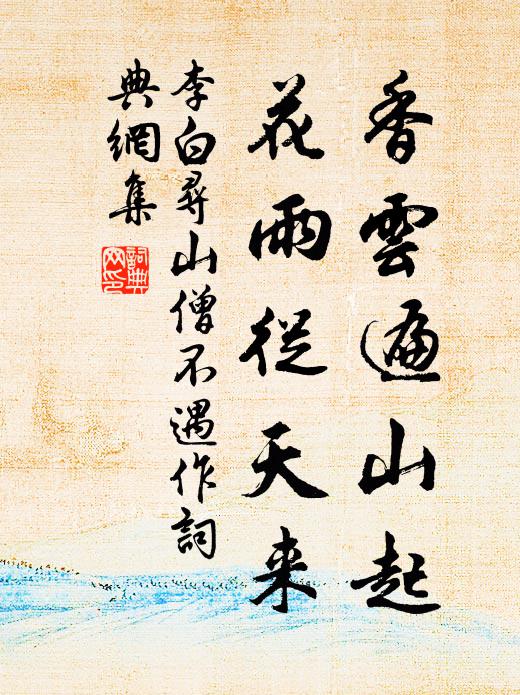 香雲遍山起
花雨從天来
李白尋山僧不遇作詞
典網集
詞典
网印